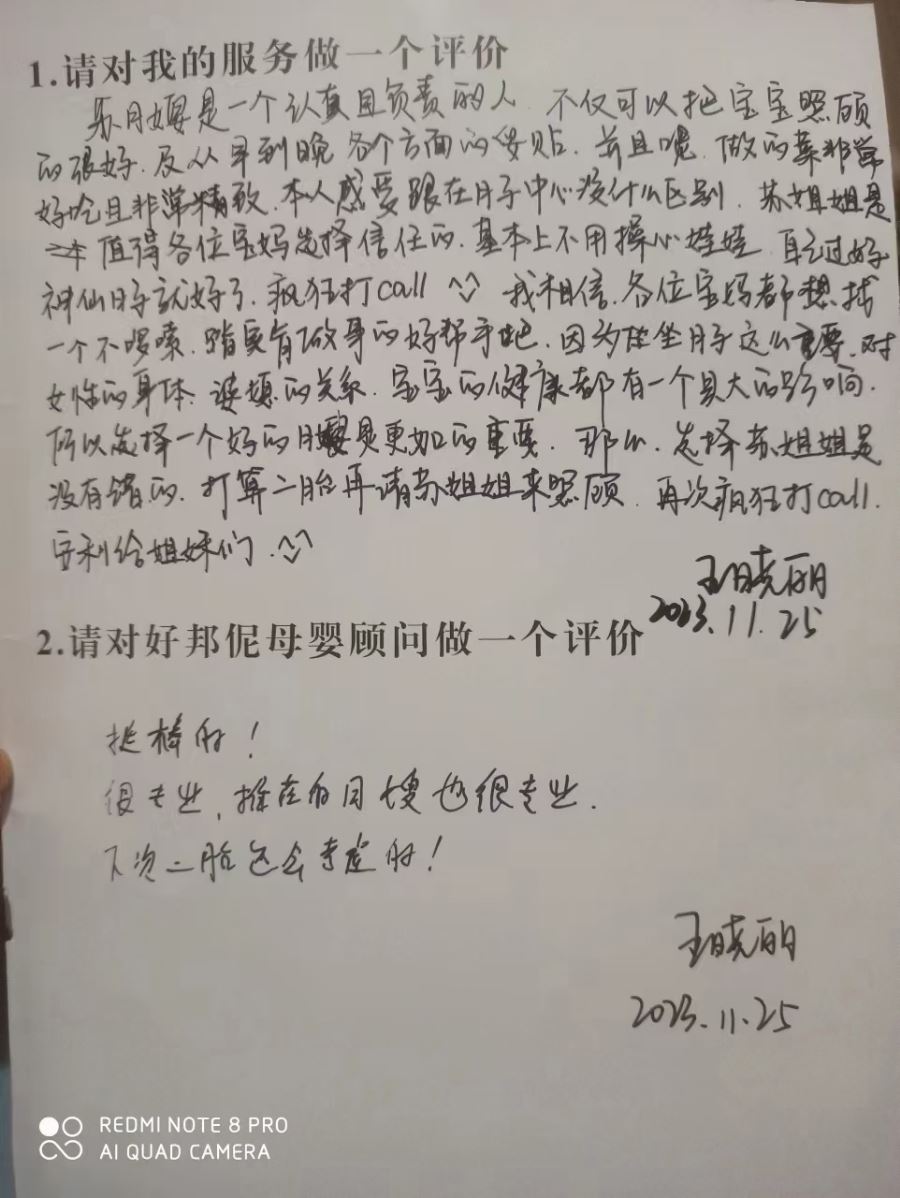 1.请对我的服务做一个评价
苏月嫂是一个认真且负责的人 不仅可以把宝宝照顾
的很好.及从早到晚各个方面的妥贴.并且呢.做的菜非常
好吃且非常精致.本人感受跟在月子中心没什么区别.苏姐姐是
值得各位宝妈选择信任的.基本上不用操心娃娃.自己过好
神仙日子就好了.疯狂打call 我相信.各位宝妈都想找
一个不啰嗦.踏实有做事的好帮手吧.因为坐月子这么重要.对
女性的身体.婆媳的关系.宝宝的健康都有一个巨大的影响.
所以选择一个好的月嫂是更加的重要.那么.选择苏姐姐是
没有错的.打算二胎再请苏姐姐来照顾.再次疯狂打call.
安利给姐妹们.
王晓丽
2023.11.25
2.请对好邦伲母婴顾问做一个评价
挺棒的!
很专业,推荐的月嫂也很专业.
下次二胎还会考虑的!
王晓丽
2023.11.25
REDMI NOTE 8 PRO
AI QUAD CAMERA